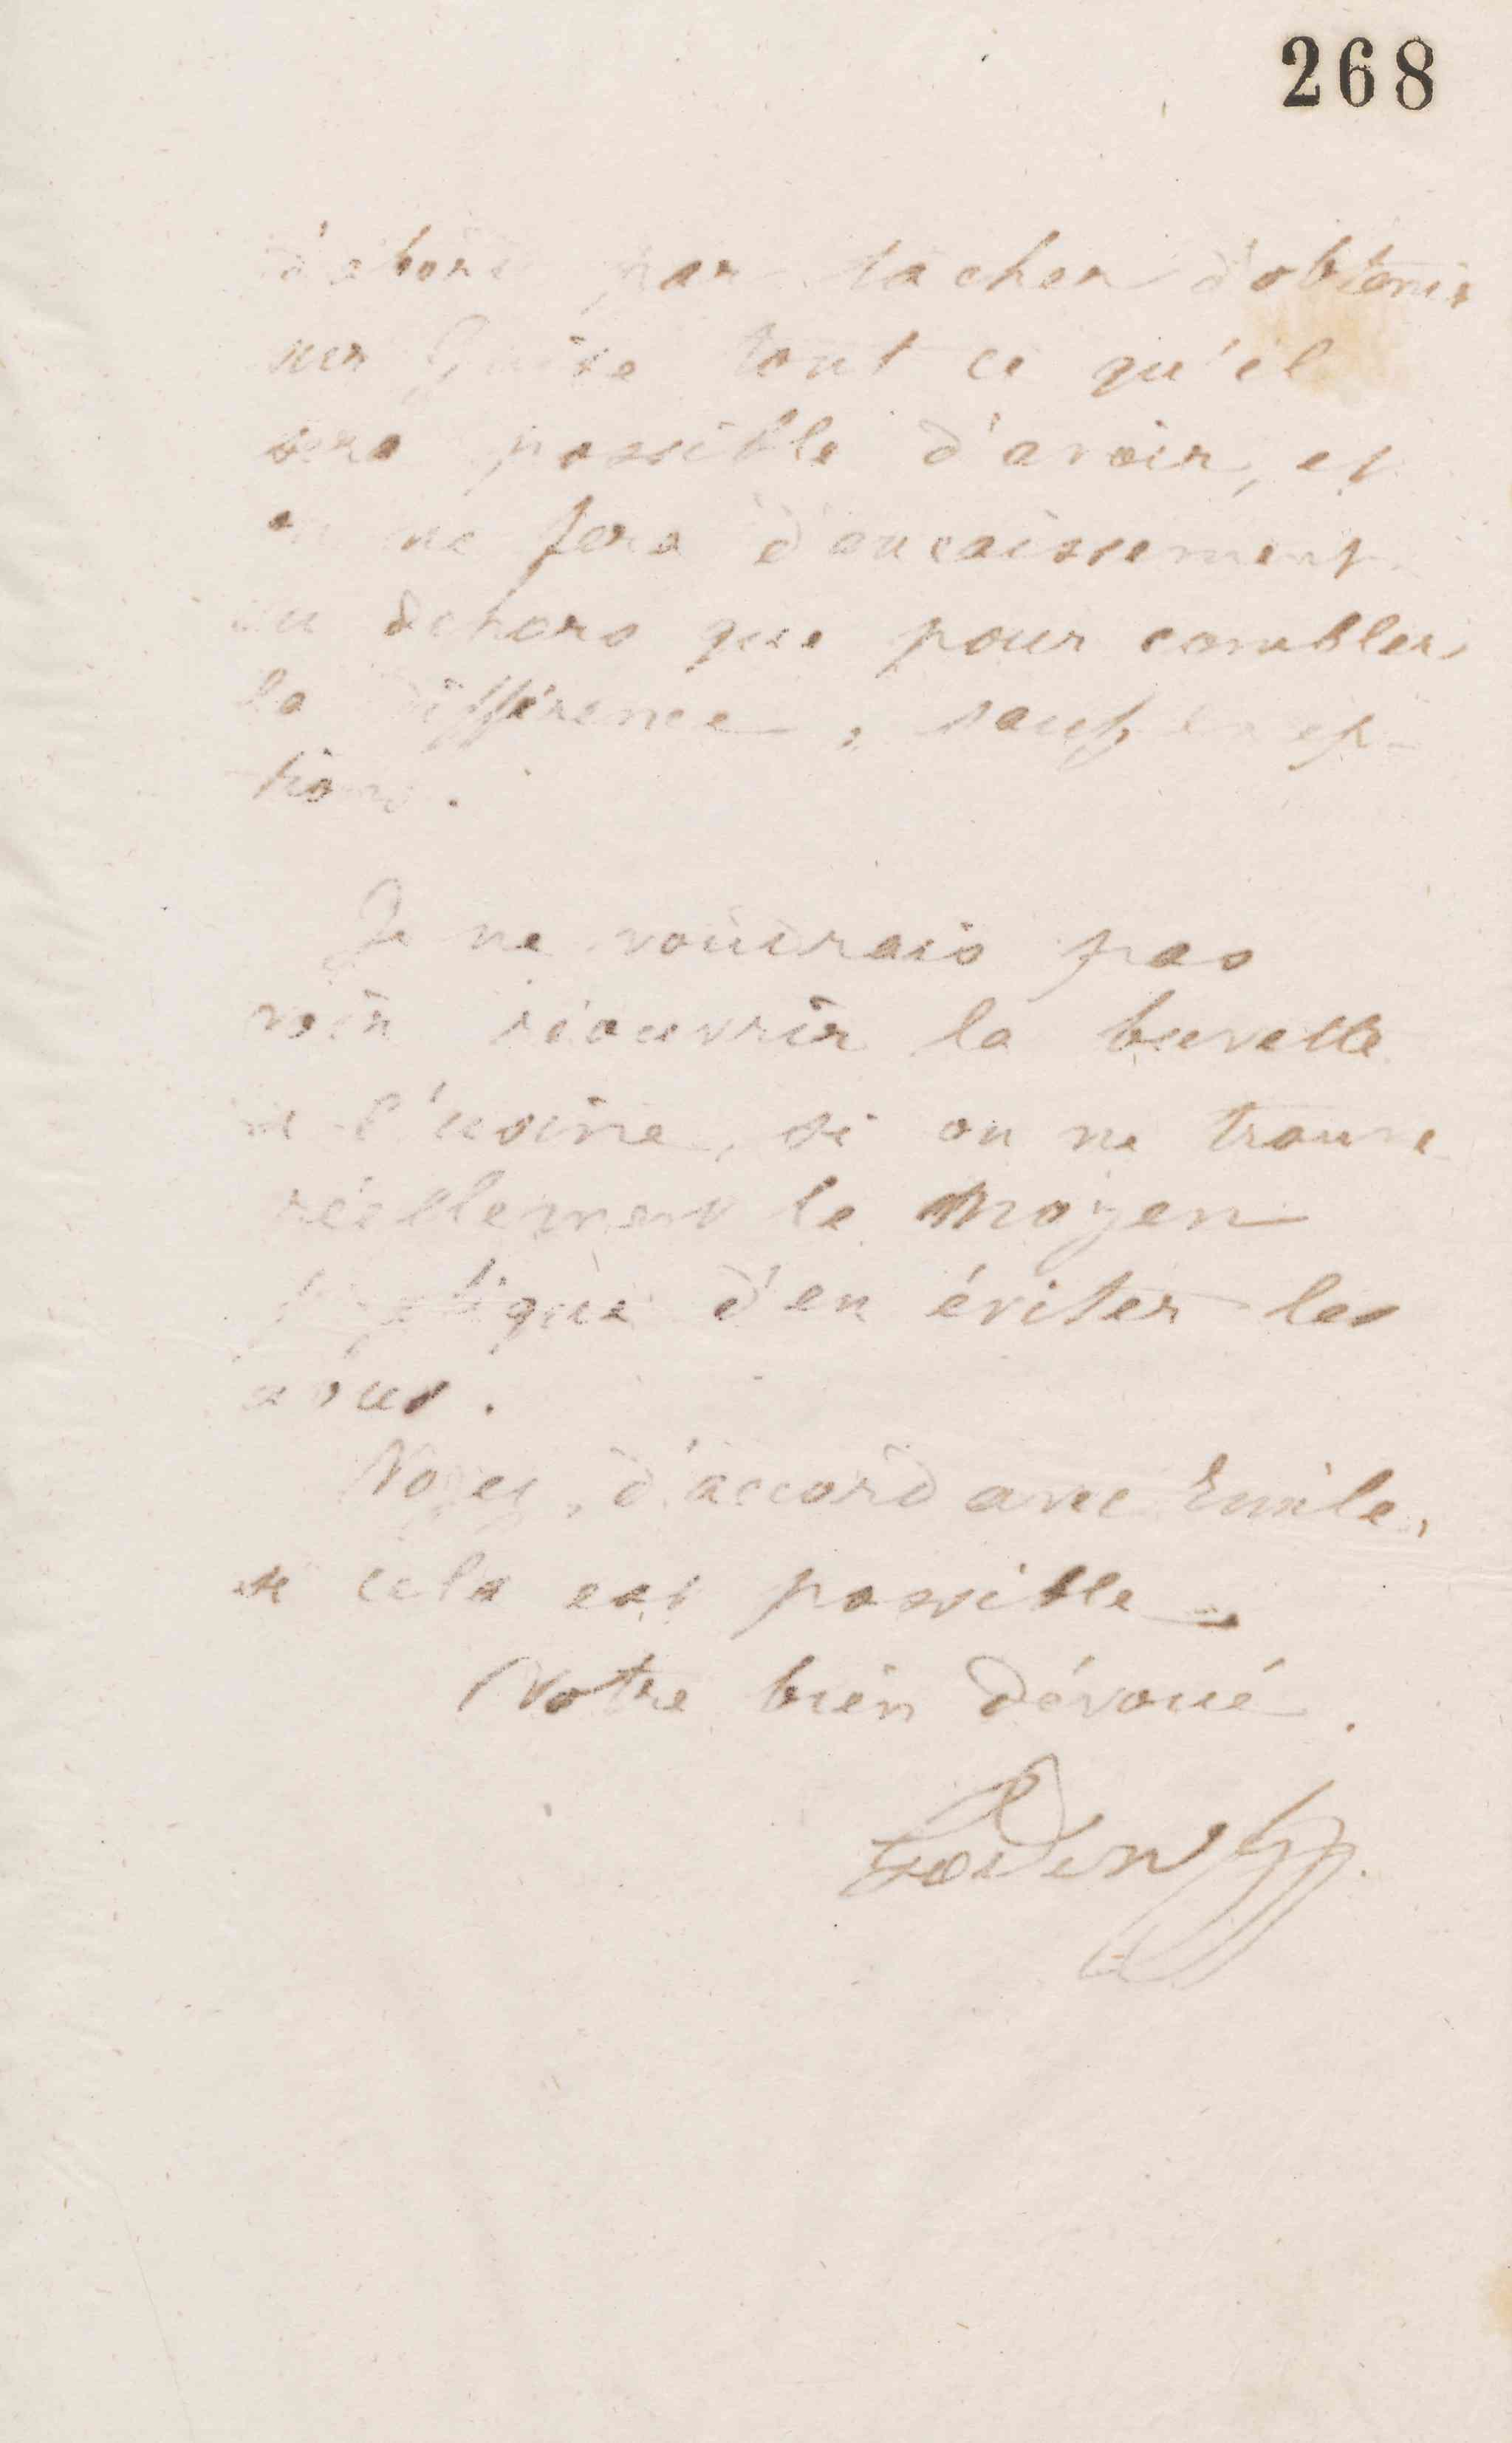 268
d'abord par tâcher d'obtenir
sur Guise tout ce qu'il
sera possible d'avoir, et
on ne fera d'encaissement
au dehors que pour combler
la différence, sauf excep-
tions.
Je ne voudrais pas
voir réouvrir la buvette
à l'usine, si on ne trouve
réellement le moyen
pratique d'en éviter les
abus.
Voyez, d'accord avec Emile,
si cela est possible.
Votre bien dévoué.
Godin